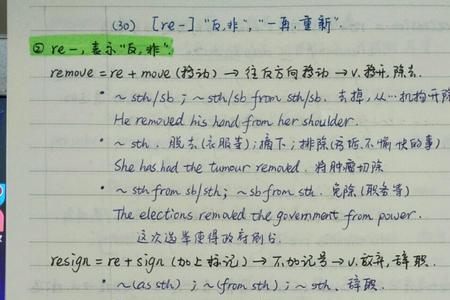 (30) [re-] "反,非", "一再,重新".
② re-, 表示"反,非".
remove = re + move (移动) → 往反方向移动 → v. 移开,除去.
• ~ sth/sb ; ~ sth/sb from sth/sb. 去掉,从…机构开除
He removed his hand from her shoulder.
• ~ sth. 脱去(衣服等);摘下;排除(污垢.不愉快的事)
She has had the tumour removed. 将肿瘤切除
• ~ sth from sb/sth; ~ sb from sth. 免除(职务等)
The elections removed the government from power.
这次选举使得政府倒台.
resign = re + sign (加上标记) → 不加记号 → v. 放弃,辞职.
• ~ (as sth) ; ~ (from sth) ; ~ sth. 辞职